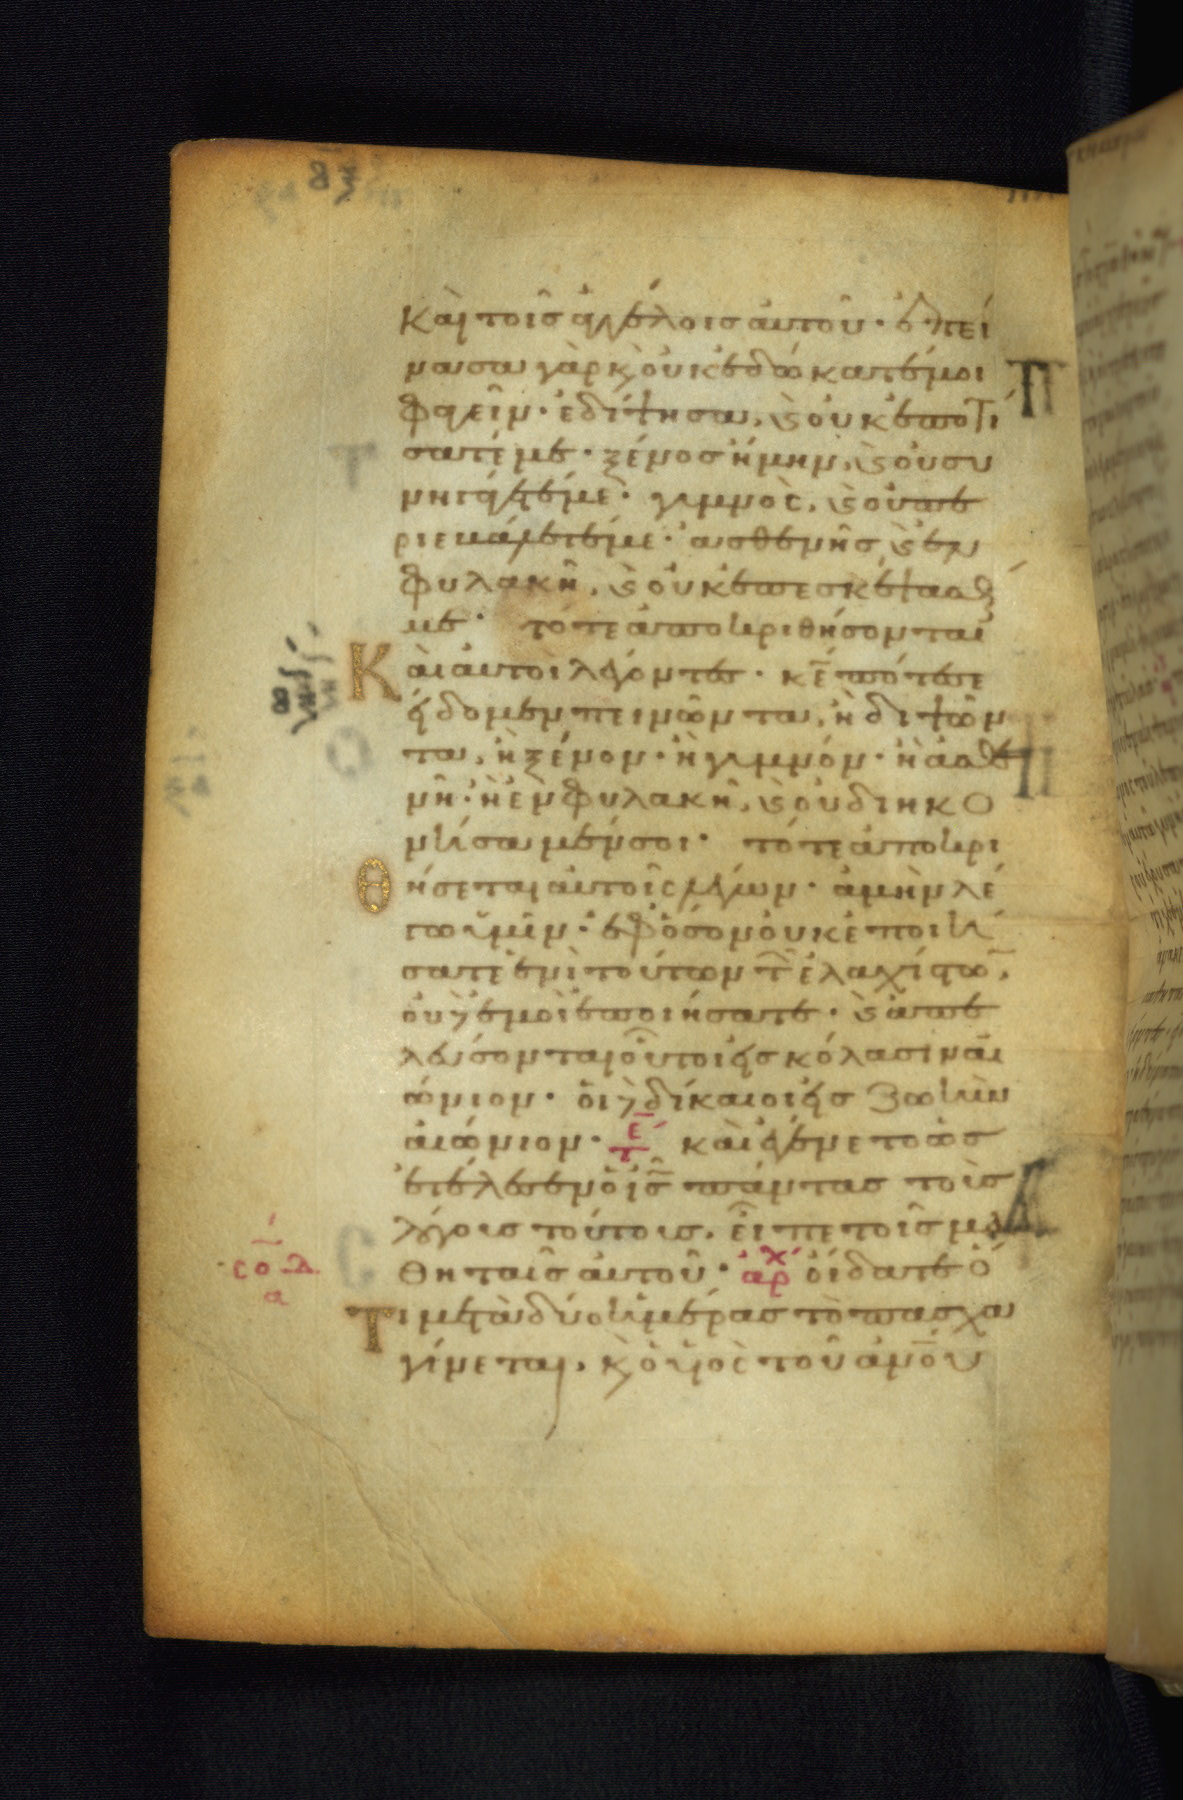 καὶ τοῖς ἀγγέλοις αὐτοῦ· ἐπεί
νασα γὰρ κ οὐκ ἐδώκατέ μοι
φαγεῖν· ἐδίψησα, κ οὐκ ἐποτί
σατέ με· ξένος ἤμην, κ οὐ συ
νηγάγετέ με· γυμνὸς, κ οὐ πε
ριεβάλετέ με· ἀσθενὴς κ ἐν
φυλακῆ, κ οὐκ ἐπεσκέψασθέ
με· τότε ἀποκριθήσονται
Καὶ αὐτοὶ λέγοντες· κε πότε σε
εἴδομεν πεινῶντα, ἢ διψῶν
τα, ἢ ξένον· ἢ γυμνόν· ἢ ἀσθε
νῆ· ἢ ἐν φυλακῆ, κ οὐ διηκο
νήσαμέν σοι· τότε ἀποκρι
Θήσεται αὐτοῖς λέγων· ἀμὴν λέ
γω ὑμῖν· ἐφ' ὅσον οὐκ ἐποιή
σατε ἑνὶ τούτων τ ἐλαχίστω,
οὐδὲ ἐμοὶ ἐποιήσατε· κ ἀπε
λεύσονται οὗτοι εἰς κόλασιν αἰ
ώνιον· οἱ δὲ δίκαιοι εἰς ζωὴν
αἰώνιον· τε καὶ ἐγένετο ὡς
ἐτέλεσεν ὁ ις πάντας τοὺς
λόγους τούτους, εἶπε τοῖς μα
θηταῖς αὐτοῦ· αρχ οἴδατε ὅ
Τι μετὰ δύο ἡμέρας τὸ πάσχα
γίνεται, κ ὁ υἱὸς τοῦ ανου